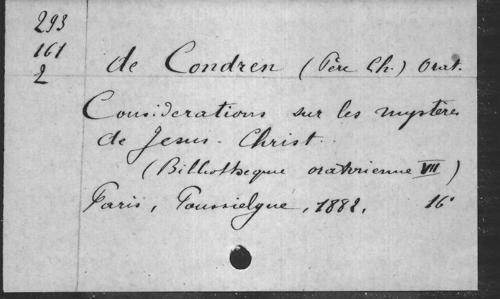 293
161
2
de Condren (Père Ch.) Orat.
Considerations sur les mystères
de Jesus-Christ.
(Billiotheque oratorienne VII)
Paris, Poussielgue, 1882, 16°